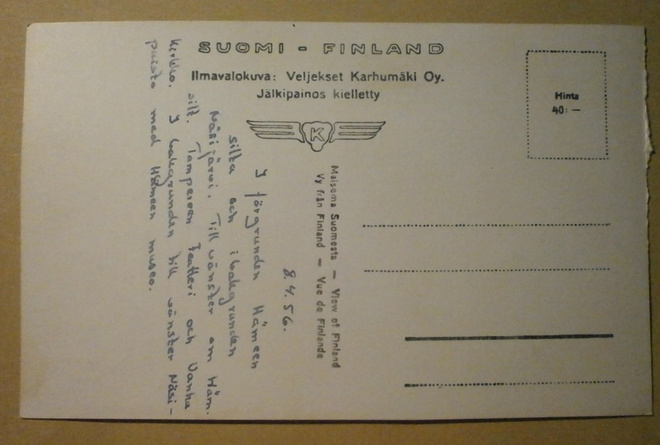 SUOMI - FINLAND
Ilmavalokuva: Veljekset Karhumäki Oy.
Jälkipainos kielletty
K
Hinta
40: —
Maisema Suomesta — View of Finland
Vy från Finland — Vue de Finlande
8.4.56.
I förgrunden Hämeen
silta och i bakgrunden
Näsijärvi. Till vänster om Häm.
silt. Tampereen Teatteri och Vanha
kirkko. I bakgrunden till vänster Näsi-
puisto med Hämeen museo.